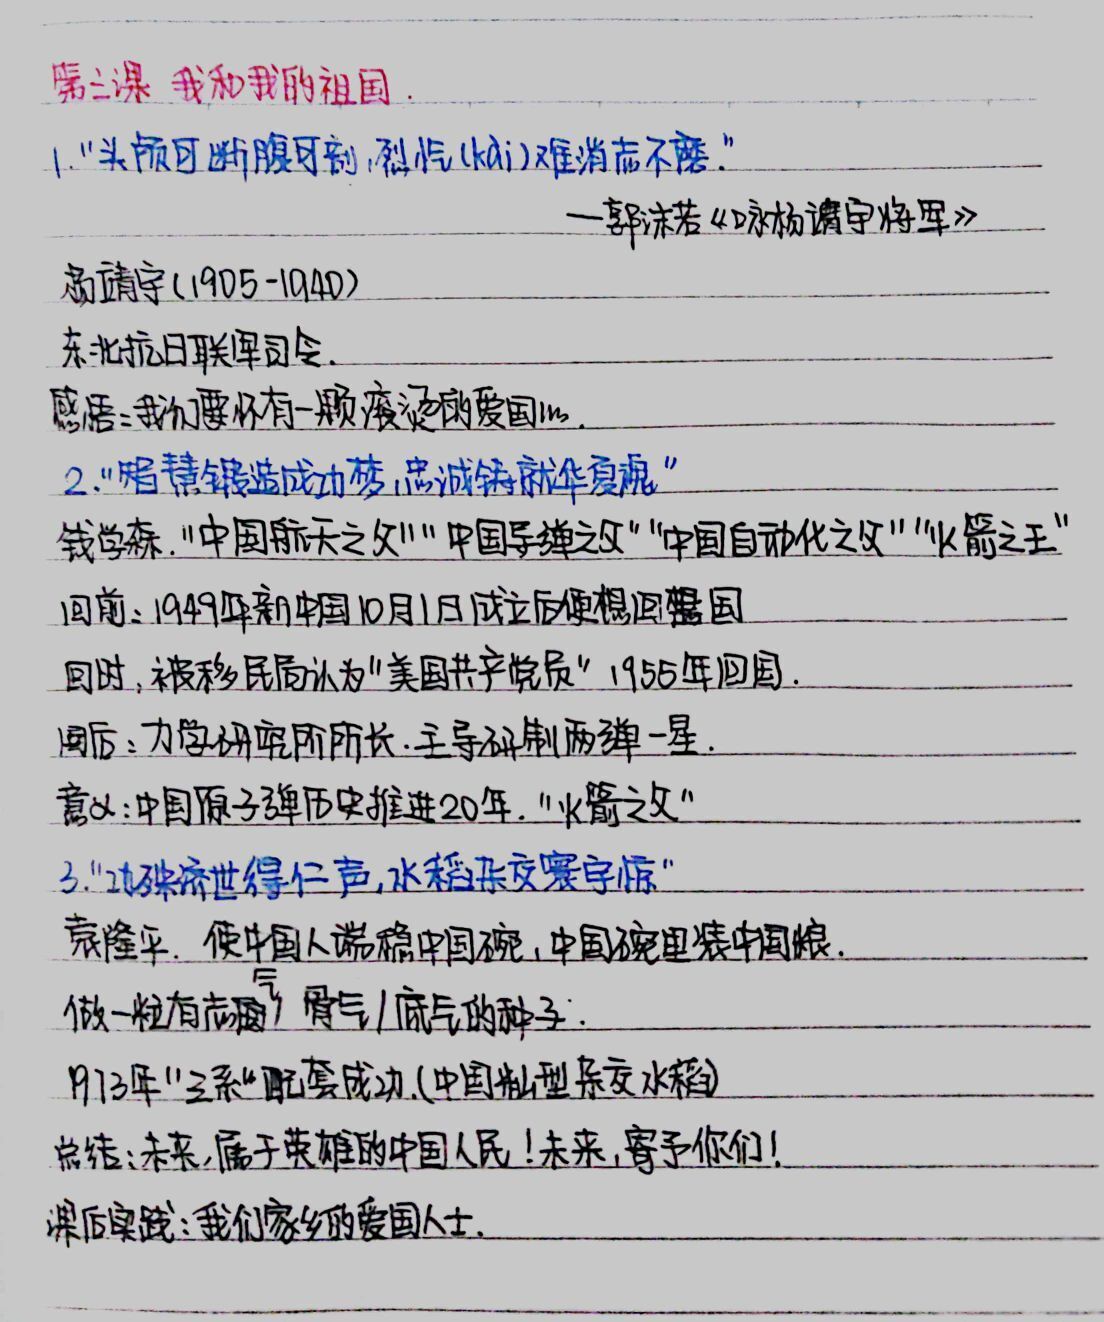 第三课 我和我的祖国.
1."头颅可断腹可剖,烈忾(kài)难消志不磨."
—郭沫若《咏杨靖宇将军》
杨靖宇(1905-1940)
东北抗日联军司令.
感悟:我们要怀有一颗滚烫的爱国心.
2."智慧锻造成功梦,忠诚铸就华夏魂"
钱学森."中国航天之父""中国导弹之父""中国自动化之父""火箭之王"
回前:1949年新中国10月1日成立后便想回国
回时,被移民局认为"美国共产党员"1955年回国.
回后:力学研究所所长.主导研制两弹一星.
意义:中国原子弹历史推进20年."火箭之父"
3."功殊济世得仁声,水稻杂交寰宇惊"
袁隆平.使中国人端稳中国碗,中国碗里装中国粮.
做一粒有志气/骨气/底气的种子.
1973年"三系"配套成功.(中国籼型杂交水稻)
总结:未来,属于英雄的中国人民!未来,寄予你们!
课后实践:我们家乡的爱国人士.